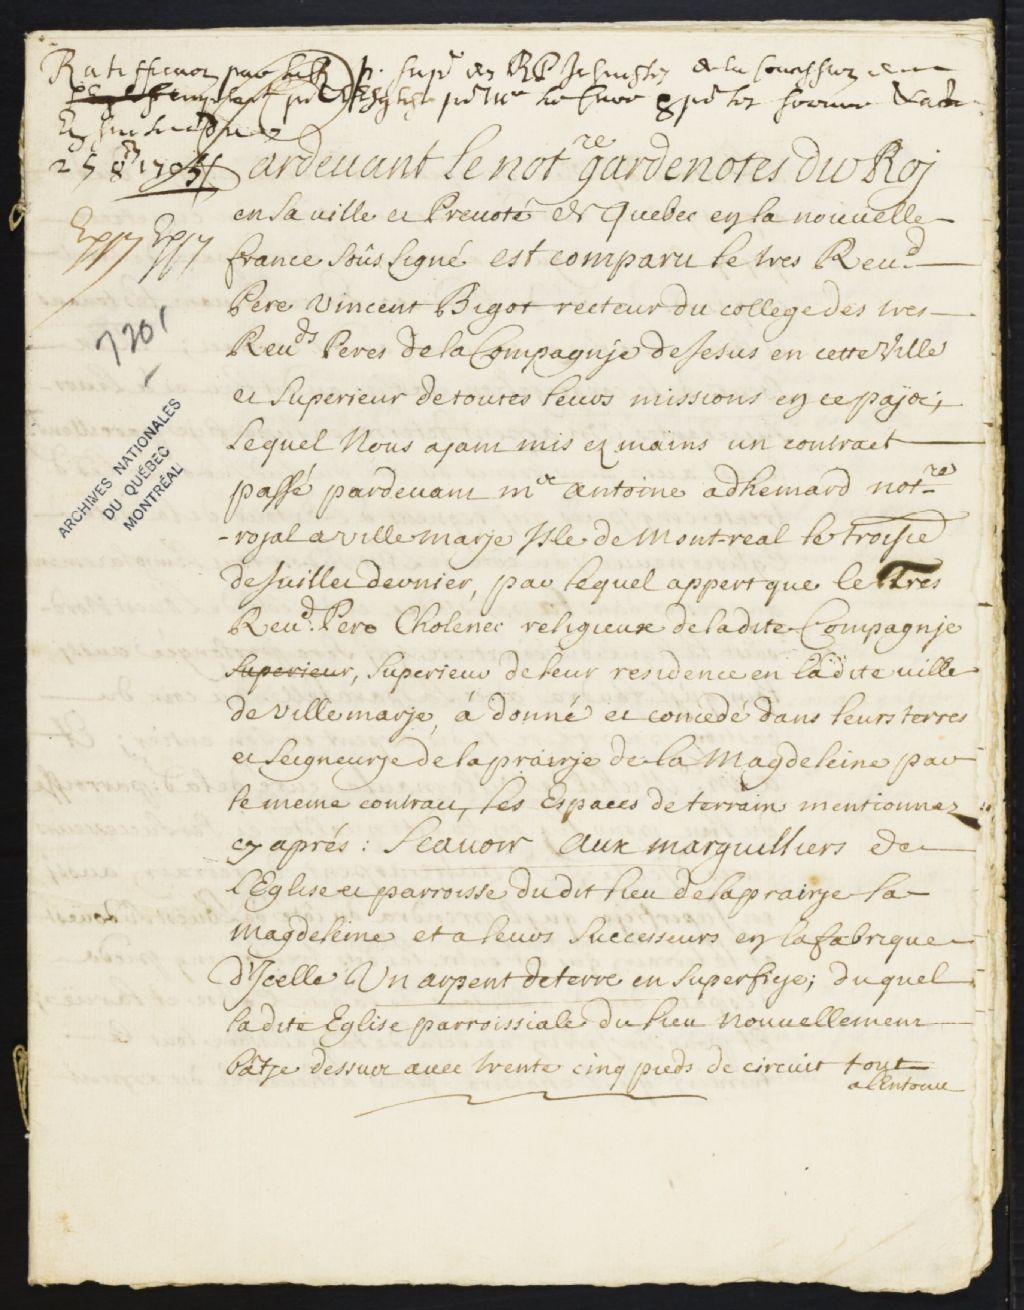 Ratification par le R. p. supr des RP Jesuistes de la concession de
l'Eglise pr Mr le Cure & pr les soeurs
25 8bre 1705
Pardevant le notre gardenotes du Roj
en la ville et Prevoté de Quebec en la nouvelle
france soûs signé est comparu le tres Reud
Pere Vincent Bigot recteur du college des tres
Reuds Peres de la Compagnje de Jesus en cette Ville
et Superieur de toutes leurs missions en ce païs;
Lequel Nous ajant mis en mains un contract
passé pardevant me Antoine adhemard notre
rojal a Villemarje Isle de Mont-real le troisie
de Juillet dernier, par lequel appert que le Tres
Reud. Pere Cholenec religieux de ladite Compagnje
Superieur, Superieur de leur residence en ladite ville
de Villemarje, á donné et concedé dans leurs terres
et Seigneurje de laprairje de la Magdeleine par
le meme contract, les Espaces de terrain mentionnez
cy aprés: Scavoir Aux marguilliers de
l'Eglise et parroisse dudit lieu de laprairje la
Magdeleine et a leurs Successeurs en la fabrique
d'Jcelle Un arpent de terre en superficje; duquel
ladite Eglise parroissiale du lieu nouvellement
bâtje dessus avec trente cinq pieds de circuit tout
alentour
7201
ARCHIVES NATIONALES
DU QUÉBEC
MONTRÉAL